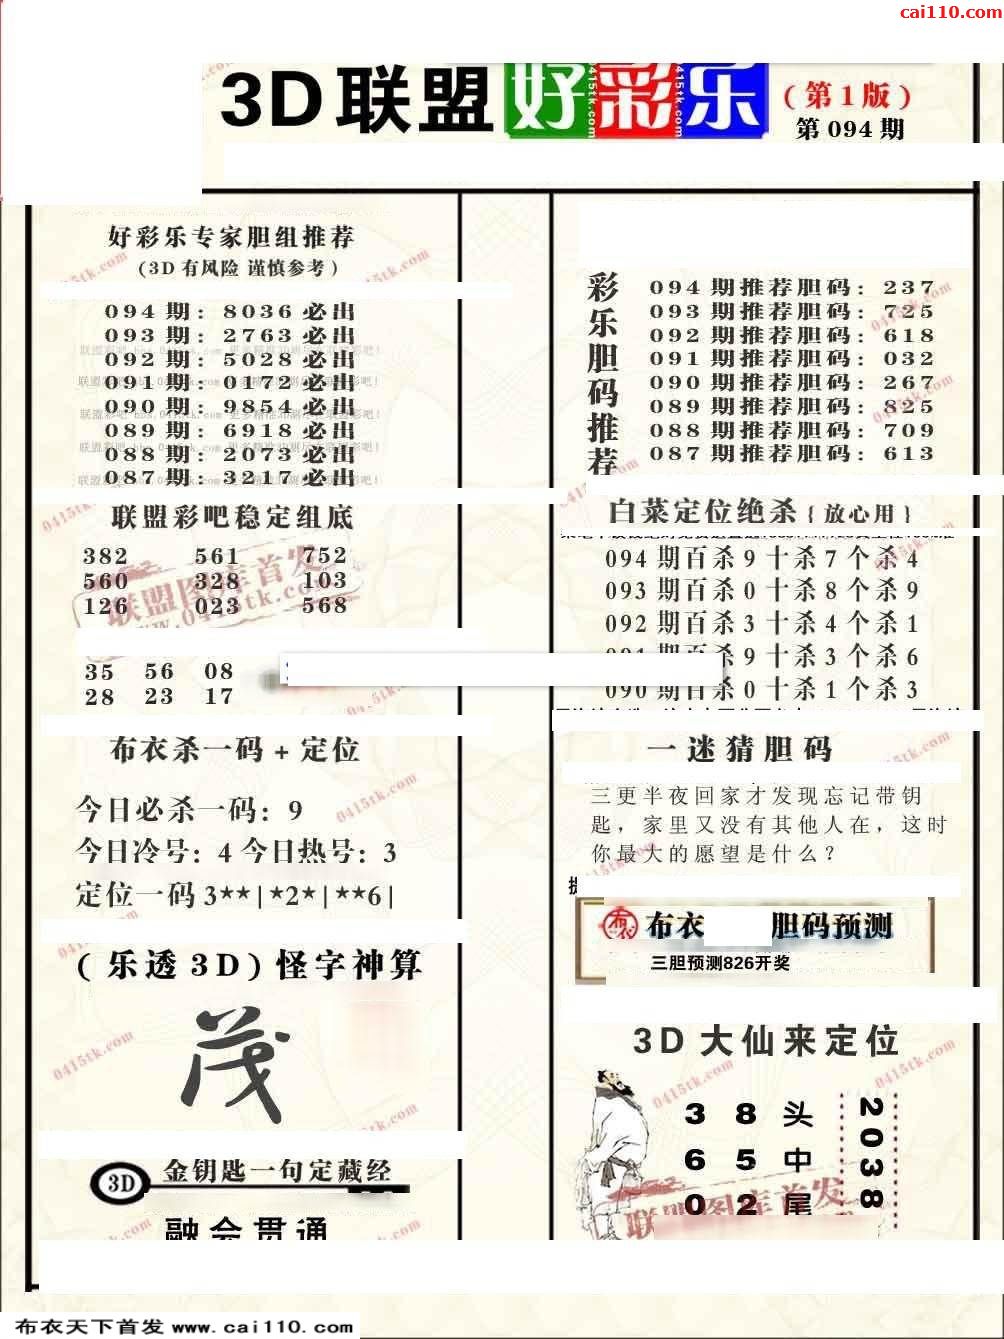 cai110.com
3D联盟好彩乐
(第1版)
第094期
好彩乐专家胆组推荐
(3D有风险 谨慎参考)
094期: 8036必出
093期: 2763必出
092期: 5028必出
091期: 0172必出
090期: 9854必出
089期: 6918必出
088期: 2073必出
087期: 3217必出
联盟彩吧稳定组底
382 561 752
560 328 103
126 023 568
35 56 08
28 23 17
布衣杀一码+定位
今日必杀一码: 9
今日冷号: 4 今日热号: 3
定位一码 3**|*2*|**6|
(乐透3D)怪字神算
茂
3D
金钥匙一句定藏经
融会贯通
彩乐胆码推荐
094期推荐胆码: 237
093期推荐胆码: 725
092期推荐胆码: 618
091期推荐胆码: 032
090期推荐胆码: 267
089期推荐胆码: 825
088期推荐胆码: 709
087期推荐胆码: 613
白菜定位绝杀{放心用}
094期百杀9十杀7个杀4
093期百杀0十杀8个杀9
092期百杀3十杀4个杀1
杀9十杀3个杀6
090期百杀0十杀1个杀3
一迷猜胆码
三更半夜回家才发现忘记带钥
匙，家里又没有其他人在，这时
你最大的愿望是什么？
布衣 胆码预测
三胆预测826开奖
3D大仙来定位
3 8 头
6 5 中
0 2 尾
2038
联盟图库首发
www.0415tk.com
联盟图库首发
0415tk.com
布衣天下首发 www.cai110.com